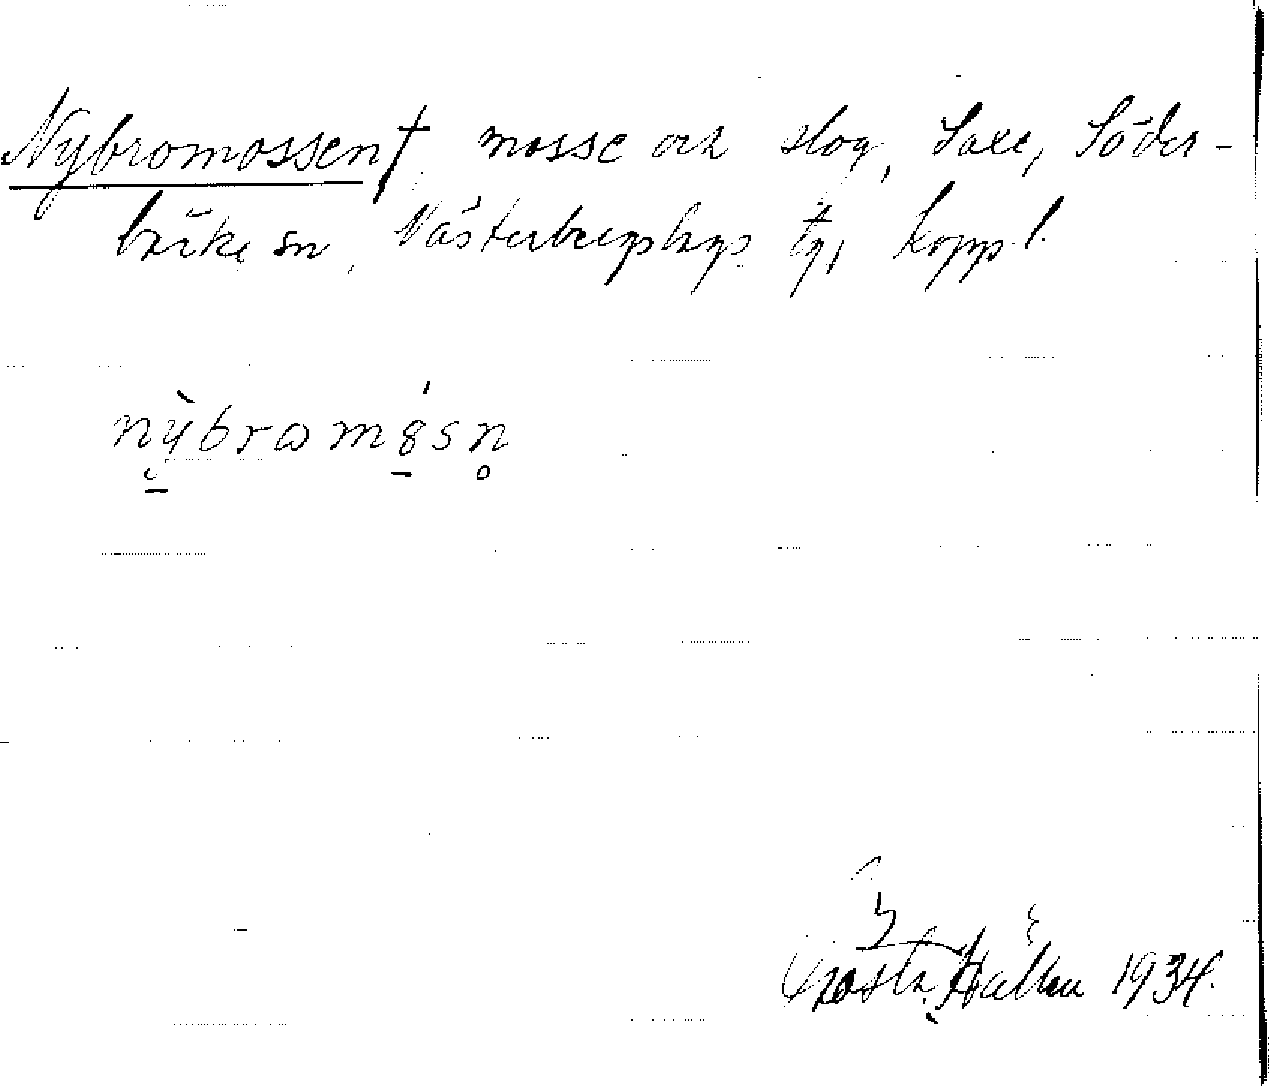 Nybromossen†, mosse och slog, Saxe, Söder-
bärke sn, Västerbergslags tg, Kopp. l.
nỳbramósn
Gösta Hallén 1934.